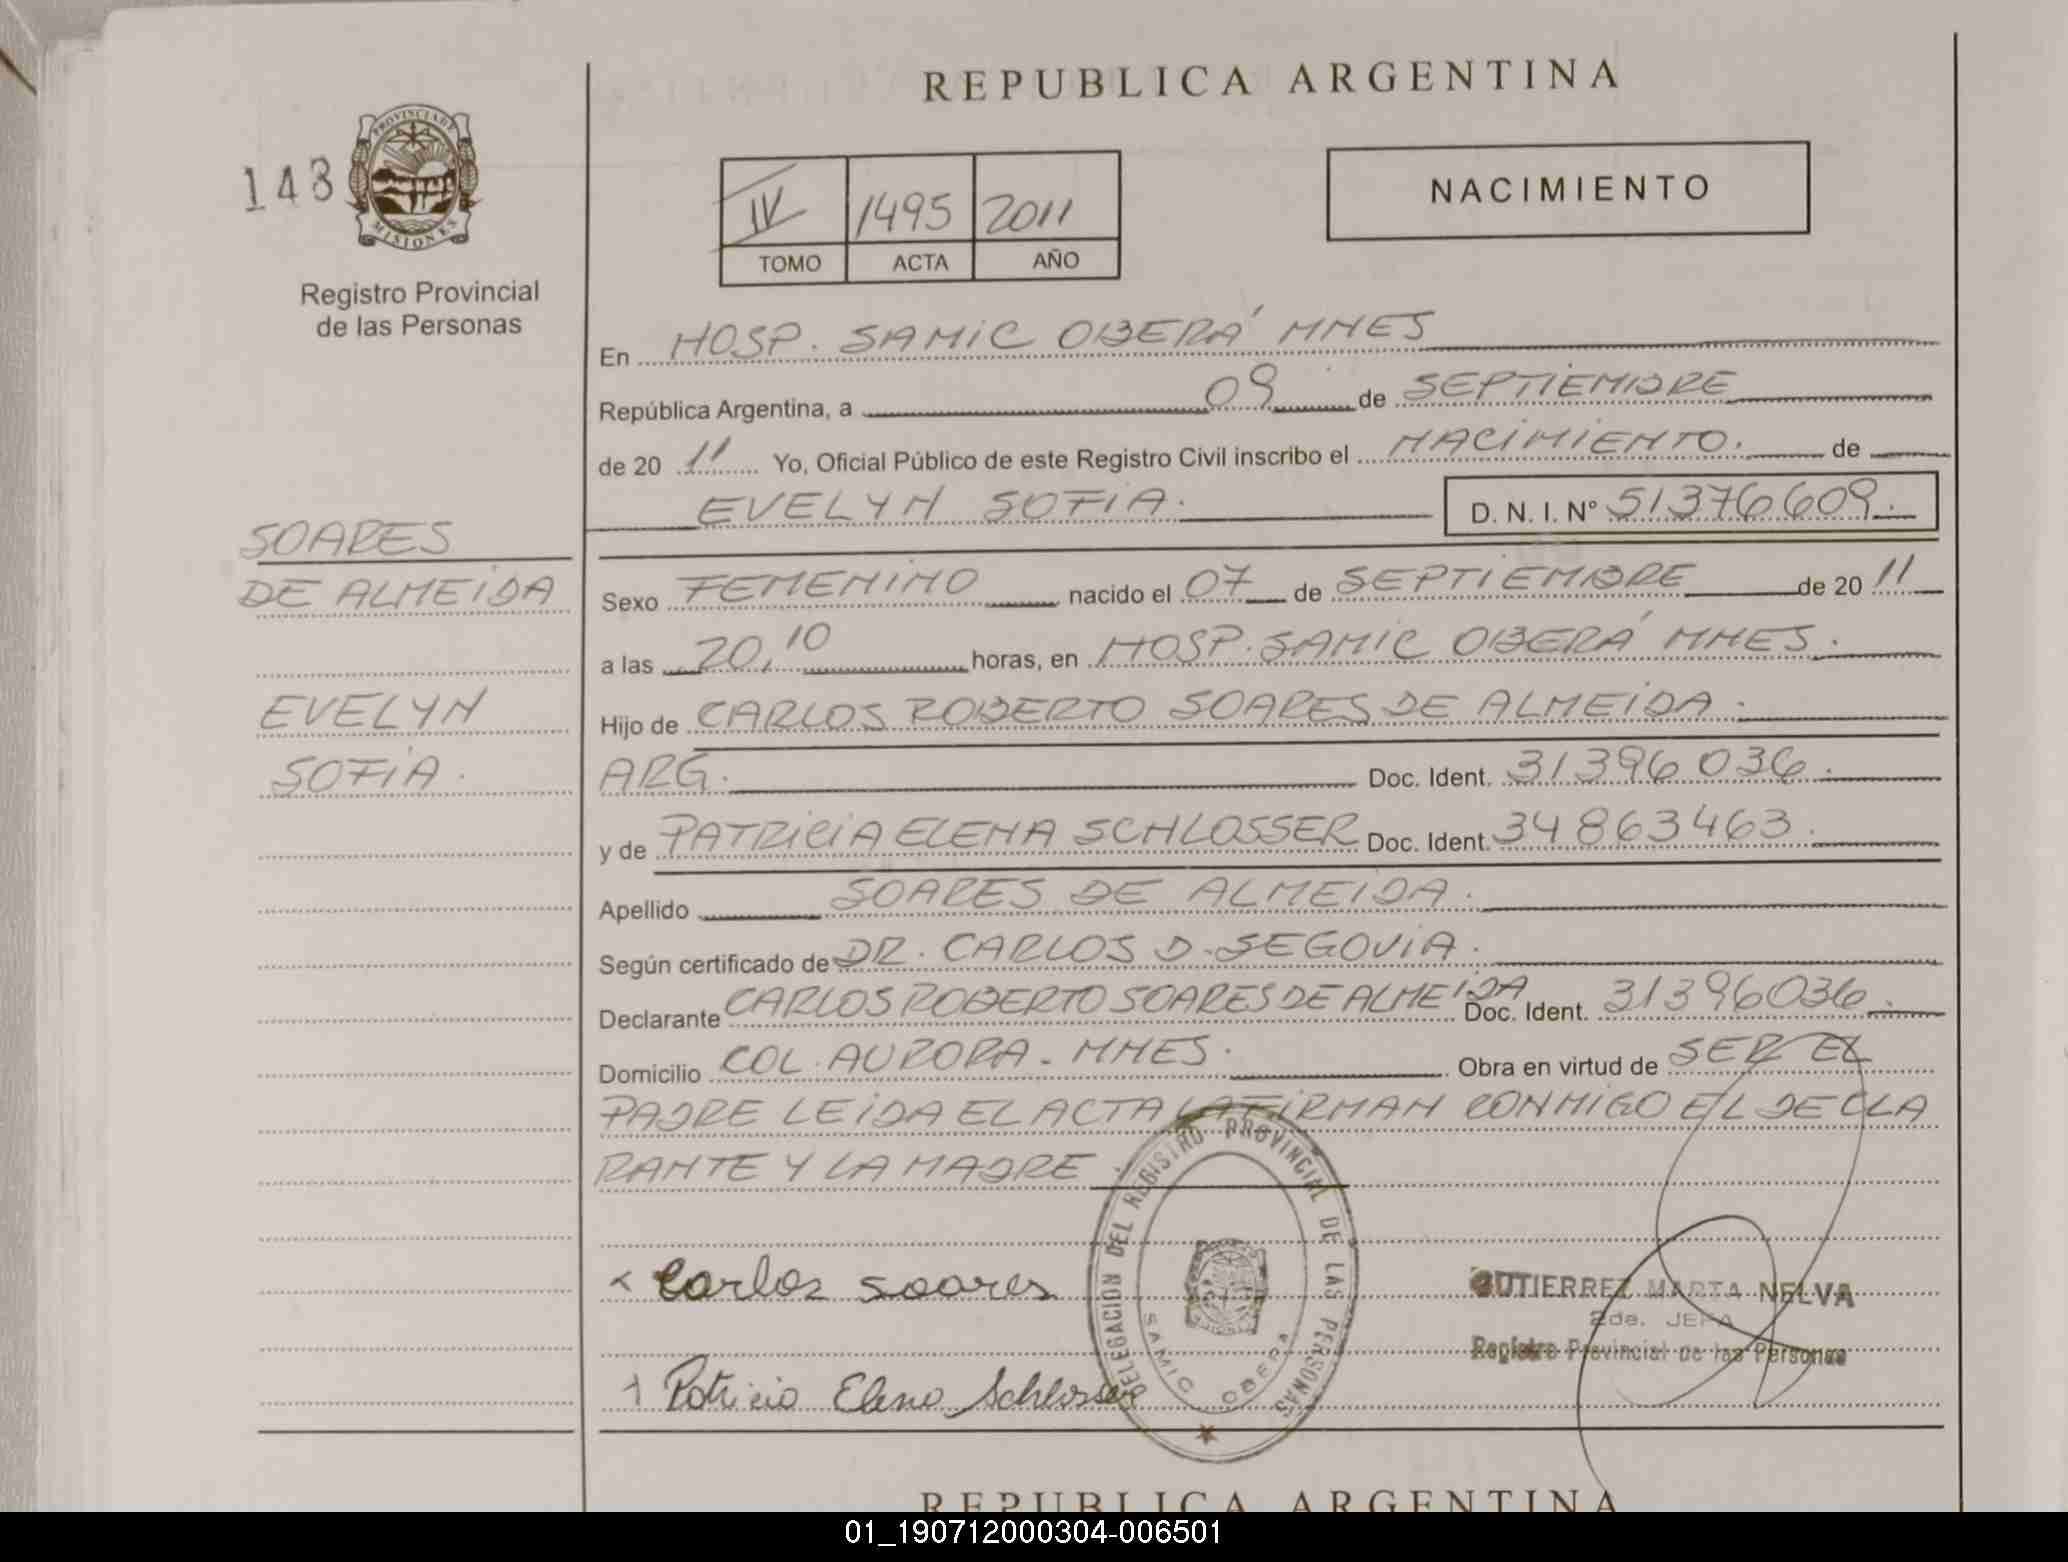 REPUBLICA ARGENTINA
143
PROVINCIA DE
MISIONES
Registro Provincial
de las Personas
IV 1495 2011
TOMO ACTA AÑO
NACIMIENTO
En HOSP. SAMIC OBERÁ MNES
República Argentina, a 09 de SEPTIEMBRE
de 20 11 Yo, Oficial Público de este Registro Civil inscribo el NACIMIENTO. de
EVELYN SOFIA. D. N. I. N° 51376609.
SOARES
DE ALMEIDA
EVELYN
SOFIA.
Sexo FEMENINO nacido el 07 de SEPTIEMBRE de 20 11
a las 20,10 horas, en HOSP. SAMIC OBERÁ MNES.
Hijo de CARLOS ROBERTO SOARES DE ALMEIDA.
ARG. Doc. Ident. 31396036.
y de PATRICIA ELENA SCHLOSSER Doc. Ident. 34863463.
Apellido SOARES DE ALMEIDA.
Según certificado de DR. CARLOS D. SEGOVIA.
Declarante CARLOS ROBERTO SOARES DE ALMEIDA Doc. Ident. 31396036.
Domicilio COL. AURORA - MNES. Obra en virtud de SER EL
PADRE LEIDA EL ACTA LA FIRMAN CONMIGO EL DECLA
RANTE Y LA MADRE
Carlos soares
Patricia Elena Schlosser
DELEGACION DEL REGISTRO PROVINCIAL DE LAS PERSONAS
SAMIC OBERA
GUTIERREZ MARTA NELVA
2da. JEFA
Registro Provincial de las Personas
REPUBLICA ARGENTINA
01_190712000304-006501